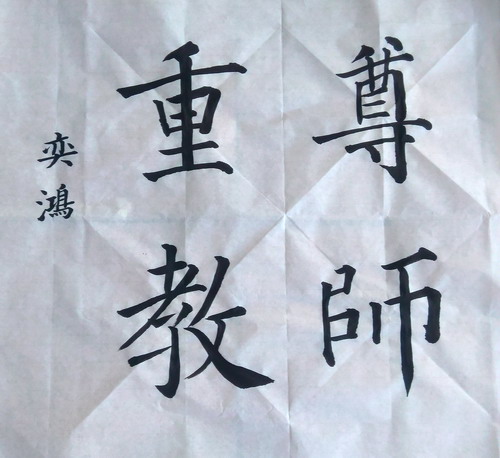 尊師
重教
奕鴻